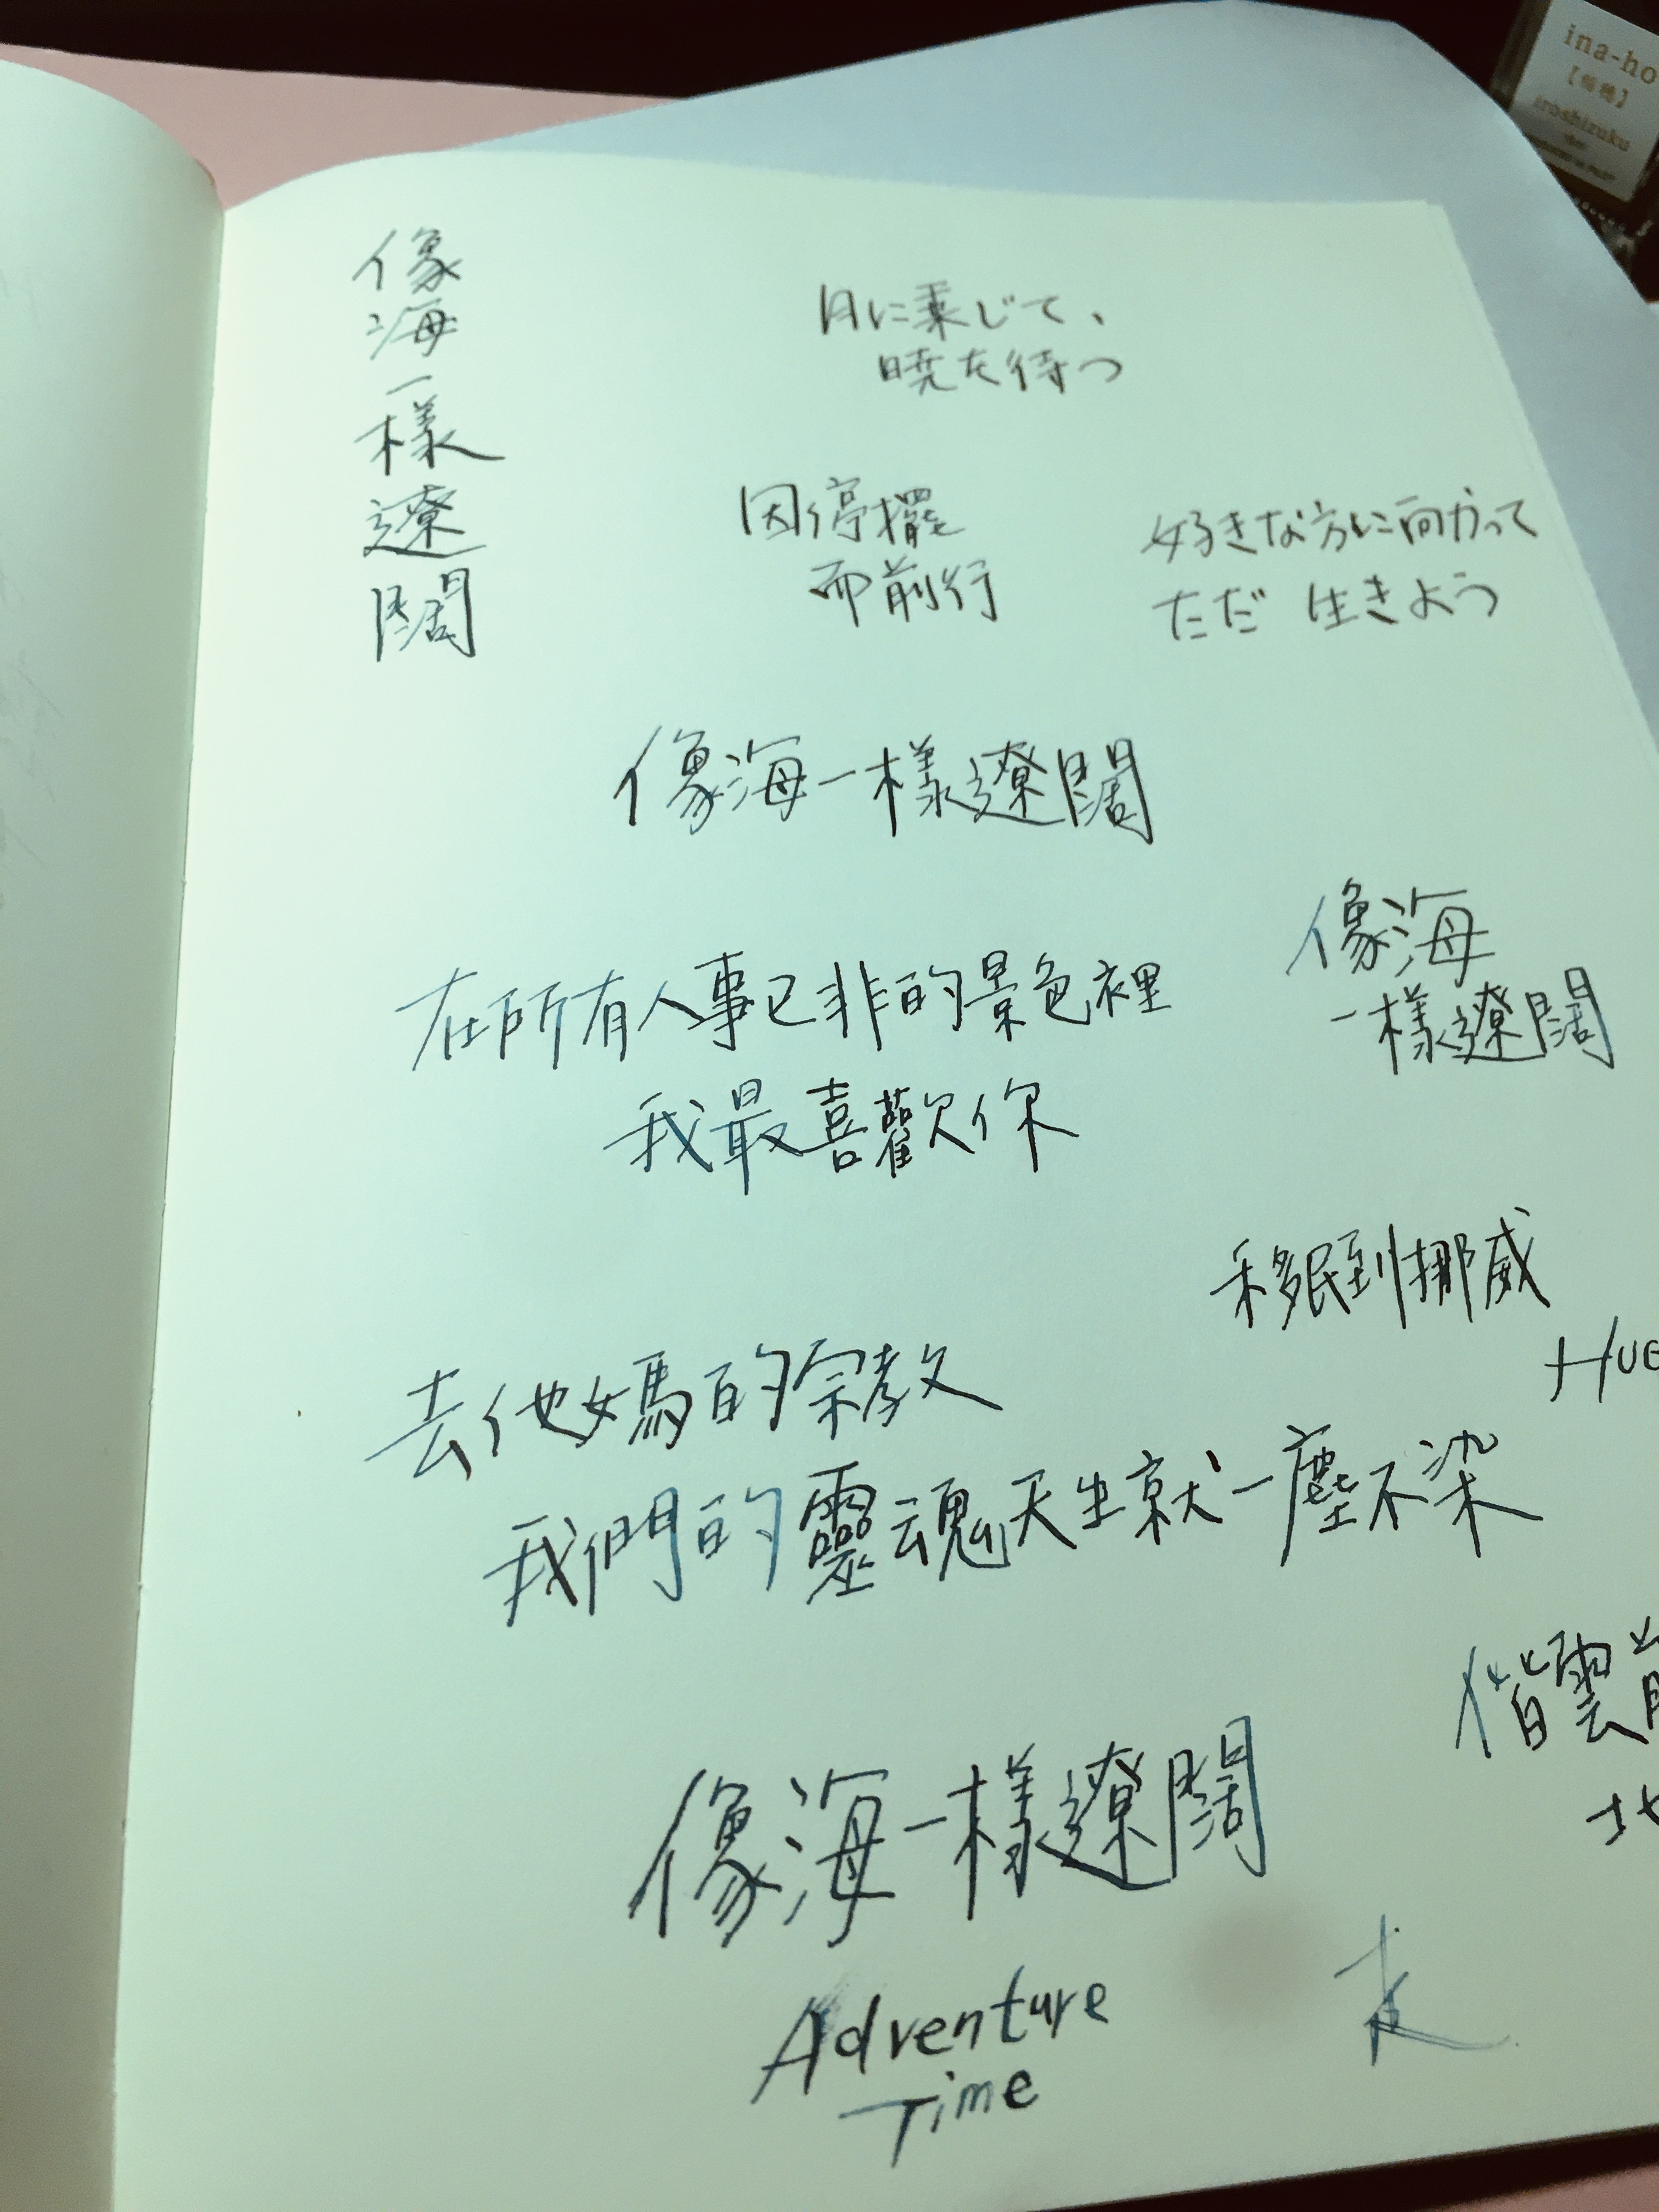 ina-ho
iroshizuku
像海一樣遼闊
月に乗じて、
暁を待つ
因停擺
而前行
好きな方に向かって
ただ 生きよう
像海一樣遼闊
像海
一樣遼闊
在所有人事已非的景色裡
我最喜歡你
移民到挪威
去他媽的宗教
我們的靈魂天生就一塵不染
偕雲
像海一樣遼闊
Adventure
Time